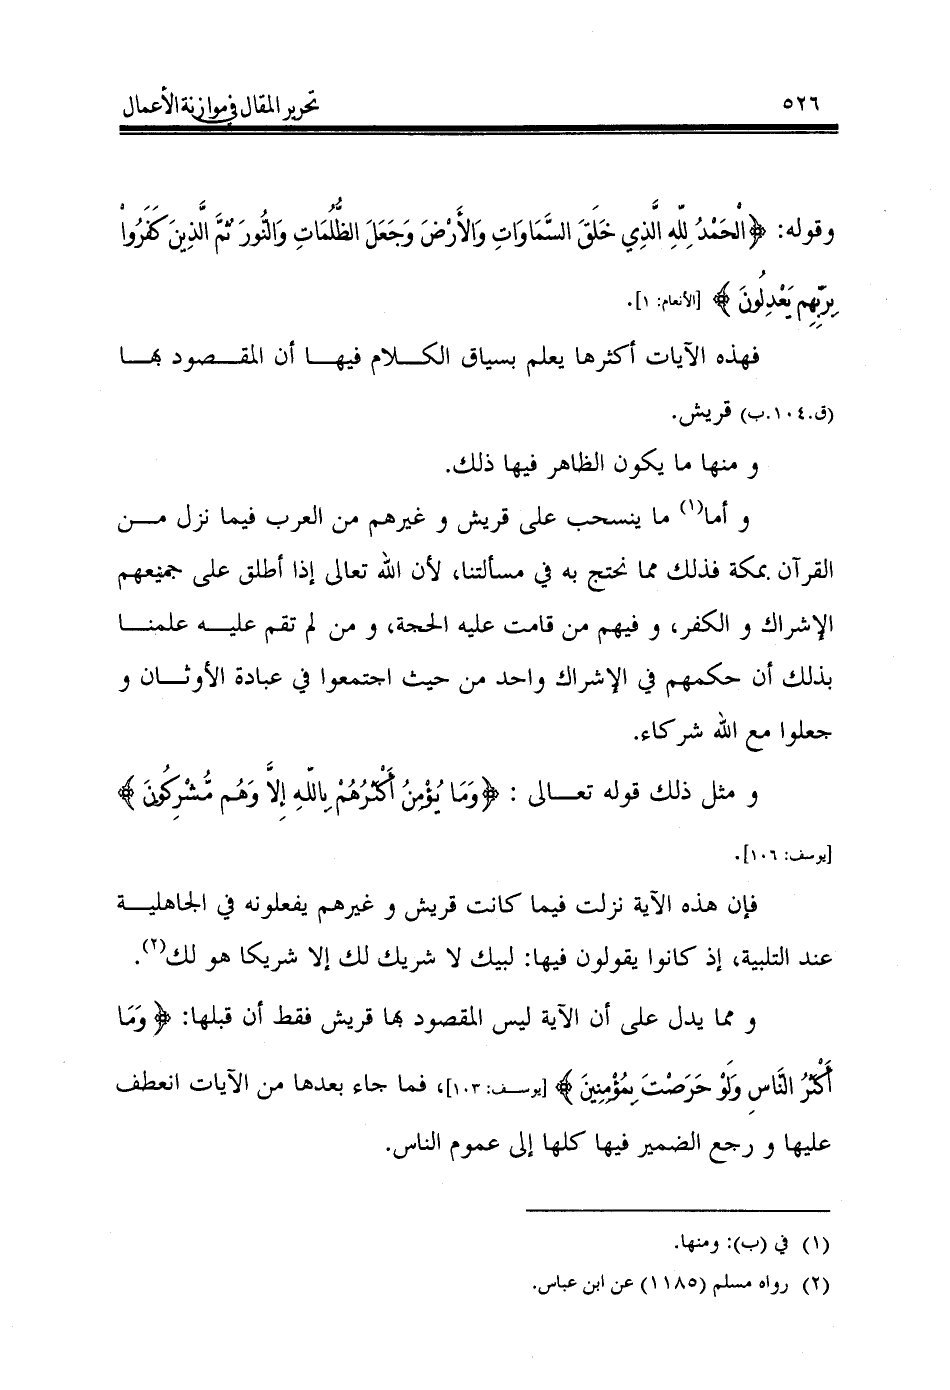 ٥٢٦ تحرير المقال في موازنة الأعمال
وقوله: ﴿الْحَمْدُ لِلّهِ الَّذِي خَلَقَ السَّمَاوَاتِ وَالأَرْضَ وَجَعَلَ الظُّلُمَاتِ وَالنُّورَ ثُمَّ الَّذِينَ كَفَرُواْ
بِرَبِّهِم يَعْدِلُونَ﴾ [الأنعام: ١].
فهذه الآيات أكثرها يعلم بسياق الكلام فيها أن المقصود بها
(ق.١٠٤.ب) قريش.
و منها ما يكون الظاهر فيها ذلك.
و أما(١) ما ينسحب على قريش و غيرهم من العرب فيما نزل من
القرآن بمكة فذلك مما نحتج به في مسألتنا، لأن الله تعالى إذا أطلق على جميعهم
الإشراك و الكفر، و فيهم من قامت عليه الحجة، و من لم تقم عليه علمنا
بذلك أن حكمهم في الإشراك واحد من حيث اجتمعوا في عبادة الأوثان و
جعلوا مع الله شركاء.
و مثل ذلك قوله تعالى : ﴿وَمَا يُؤْمِنُ أَكْثَرُهُمْ بِاللّهِ إِلاَّ وَهُم مُّشْرِكُونَ﴾
[يوسف: ١٠٦].
فإن هذه الآية نزلت فيما كانت قريش و غيرهم يفعلونه في الجاهلية
عند التلبية، إذ كانوا يقولون فيها: لبيك لا شريك لك إلا شريكا هو لك(٢).
و مما يدل على أن الآية ليس المقصود بها قريش فقط أن قبلها: ﴿وَمَا
أَكْثَرُ النَّاسِ وَلَوْ حَرَصْتَ بِمُؤْمِنِينَ﴾ [يوسف: ١٠٣]، فما جاء بعدها من الآيات انعطف
عليها و رجع الضمير فيها كلها إلى عموم الناس.
(١) في (ب): ومنها.
(٢) رواه مسلم (١١٨٥) عن ابن عباس.